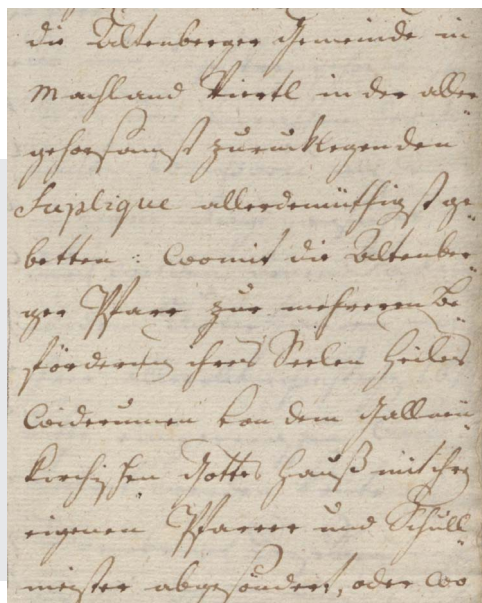 die Altenberger Gemeinde in
Machland Viertl in der aller
gehorsamst zuruckhlegenden
Suplique allerdemüthigst ge-
betten: womit die Altenber-
ger Pfarr zur mehreren Be-
förderung ihres Seelen Heiles
widerummen von dem Gallneu-
kirchischen Gottes Hauß mit ihren
eigenen Pfarrer und Schull-
meister abgesöndert, oder wo